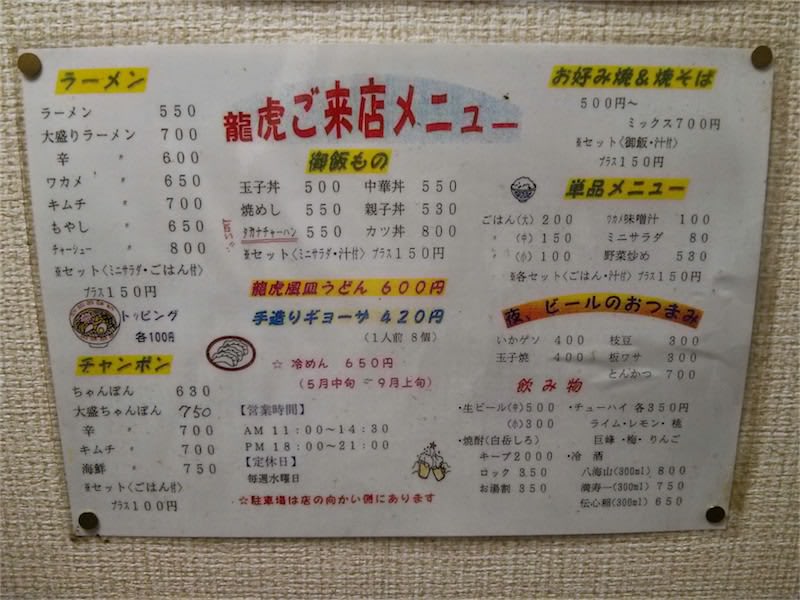 ラーメン
ラーメン 550
大盛りラーメン 700
辛 〃 600
ワカメ 〃 650
キムチ 〃 700
もやし 〃 650
チャーシュー 〃 800
※セット〈ミニサラダ・ごはん付〉
プラス150円
トッピング
各100円
チャンポン
ちゃんぽん 630
大盛ちゃんぽん 750
辛 〃 700
キムチ 〃 700
海鮮 〃 750
※セット〈ごはん付〉
プラス100円
龍虎ご来店メニュー
御飯もの
玉子丼 500 中華丼 550
焼めし 550 親子丼 530
タカナチャーハン 550 カツ丼 800
※セット〈ミニサラダ・汁付〉プラス150円
龍虎風皿うどん 600円
手造りギョーザ 420円
(1人前 8個)
☆ 冷めん 650円
(5月中旬 ~ 9月上旬)
【営業時間】
AM 11:00~14:30
PM 18:00~21:00
【定休日】
毎週水曜日
☆駐車場は店の向かい側にあります
お好み焼&焼そば
500円~
ミックス700円
※セット〈御飯・汁付〉
プラス150円
単品メニュー
ごはん(大) 200 ワカメ味噌汁 100
〃 (中) 150 ミニサラダ 80
〃 (小) 100 野菜炒め 530
※各セット〈ごはん・汁付〉プラス150円
夜、ビールのおつまみ
いかゲソ 400 枝豆 300
玉子焼 400 板ワサ 300
とんかつ 700
飲み物
・生ビール(中)500 ・チューハイ 各350円
(小)300 ライム・レモン・桃
・焼酎(白岳しろ) 巨峰・梅・りんご
キープ2000 ・冷酒
ロック 350 八海山(300ml) 800
お湯割 350 満寿一(300ml) 750
伝心稲(300ml) 650